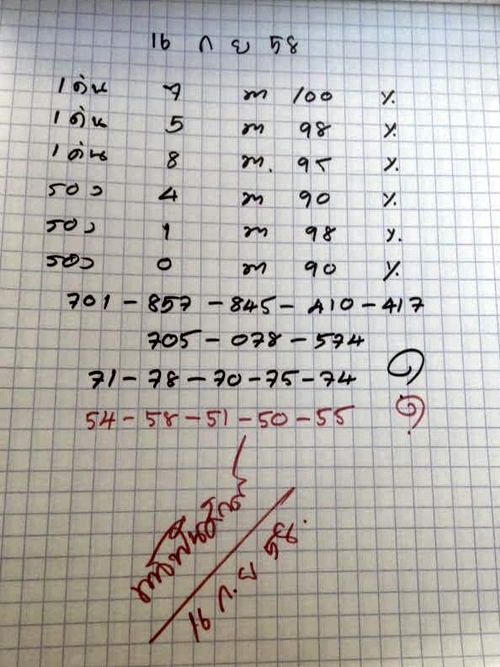 16 ก ย 58
1 เด่น 7 ก 100 %
1 เด่น 5 ก 98 %
1 เด่น 8 ก. 95 %
รอง 4 ก 90 %
รอง 1 ก 98 %
รอง 0 ก 90 %
701 - 857 - 845 - 410 - 417
705 - 078 - 574
71 - 78 - 70 - 75 - 74
54 - 58 - 51 - 50 - 55
16 ก. ย 58.